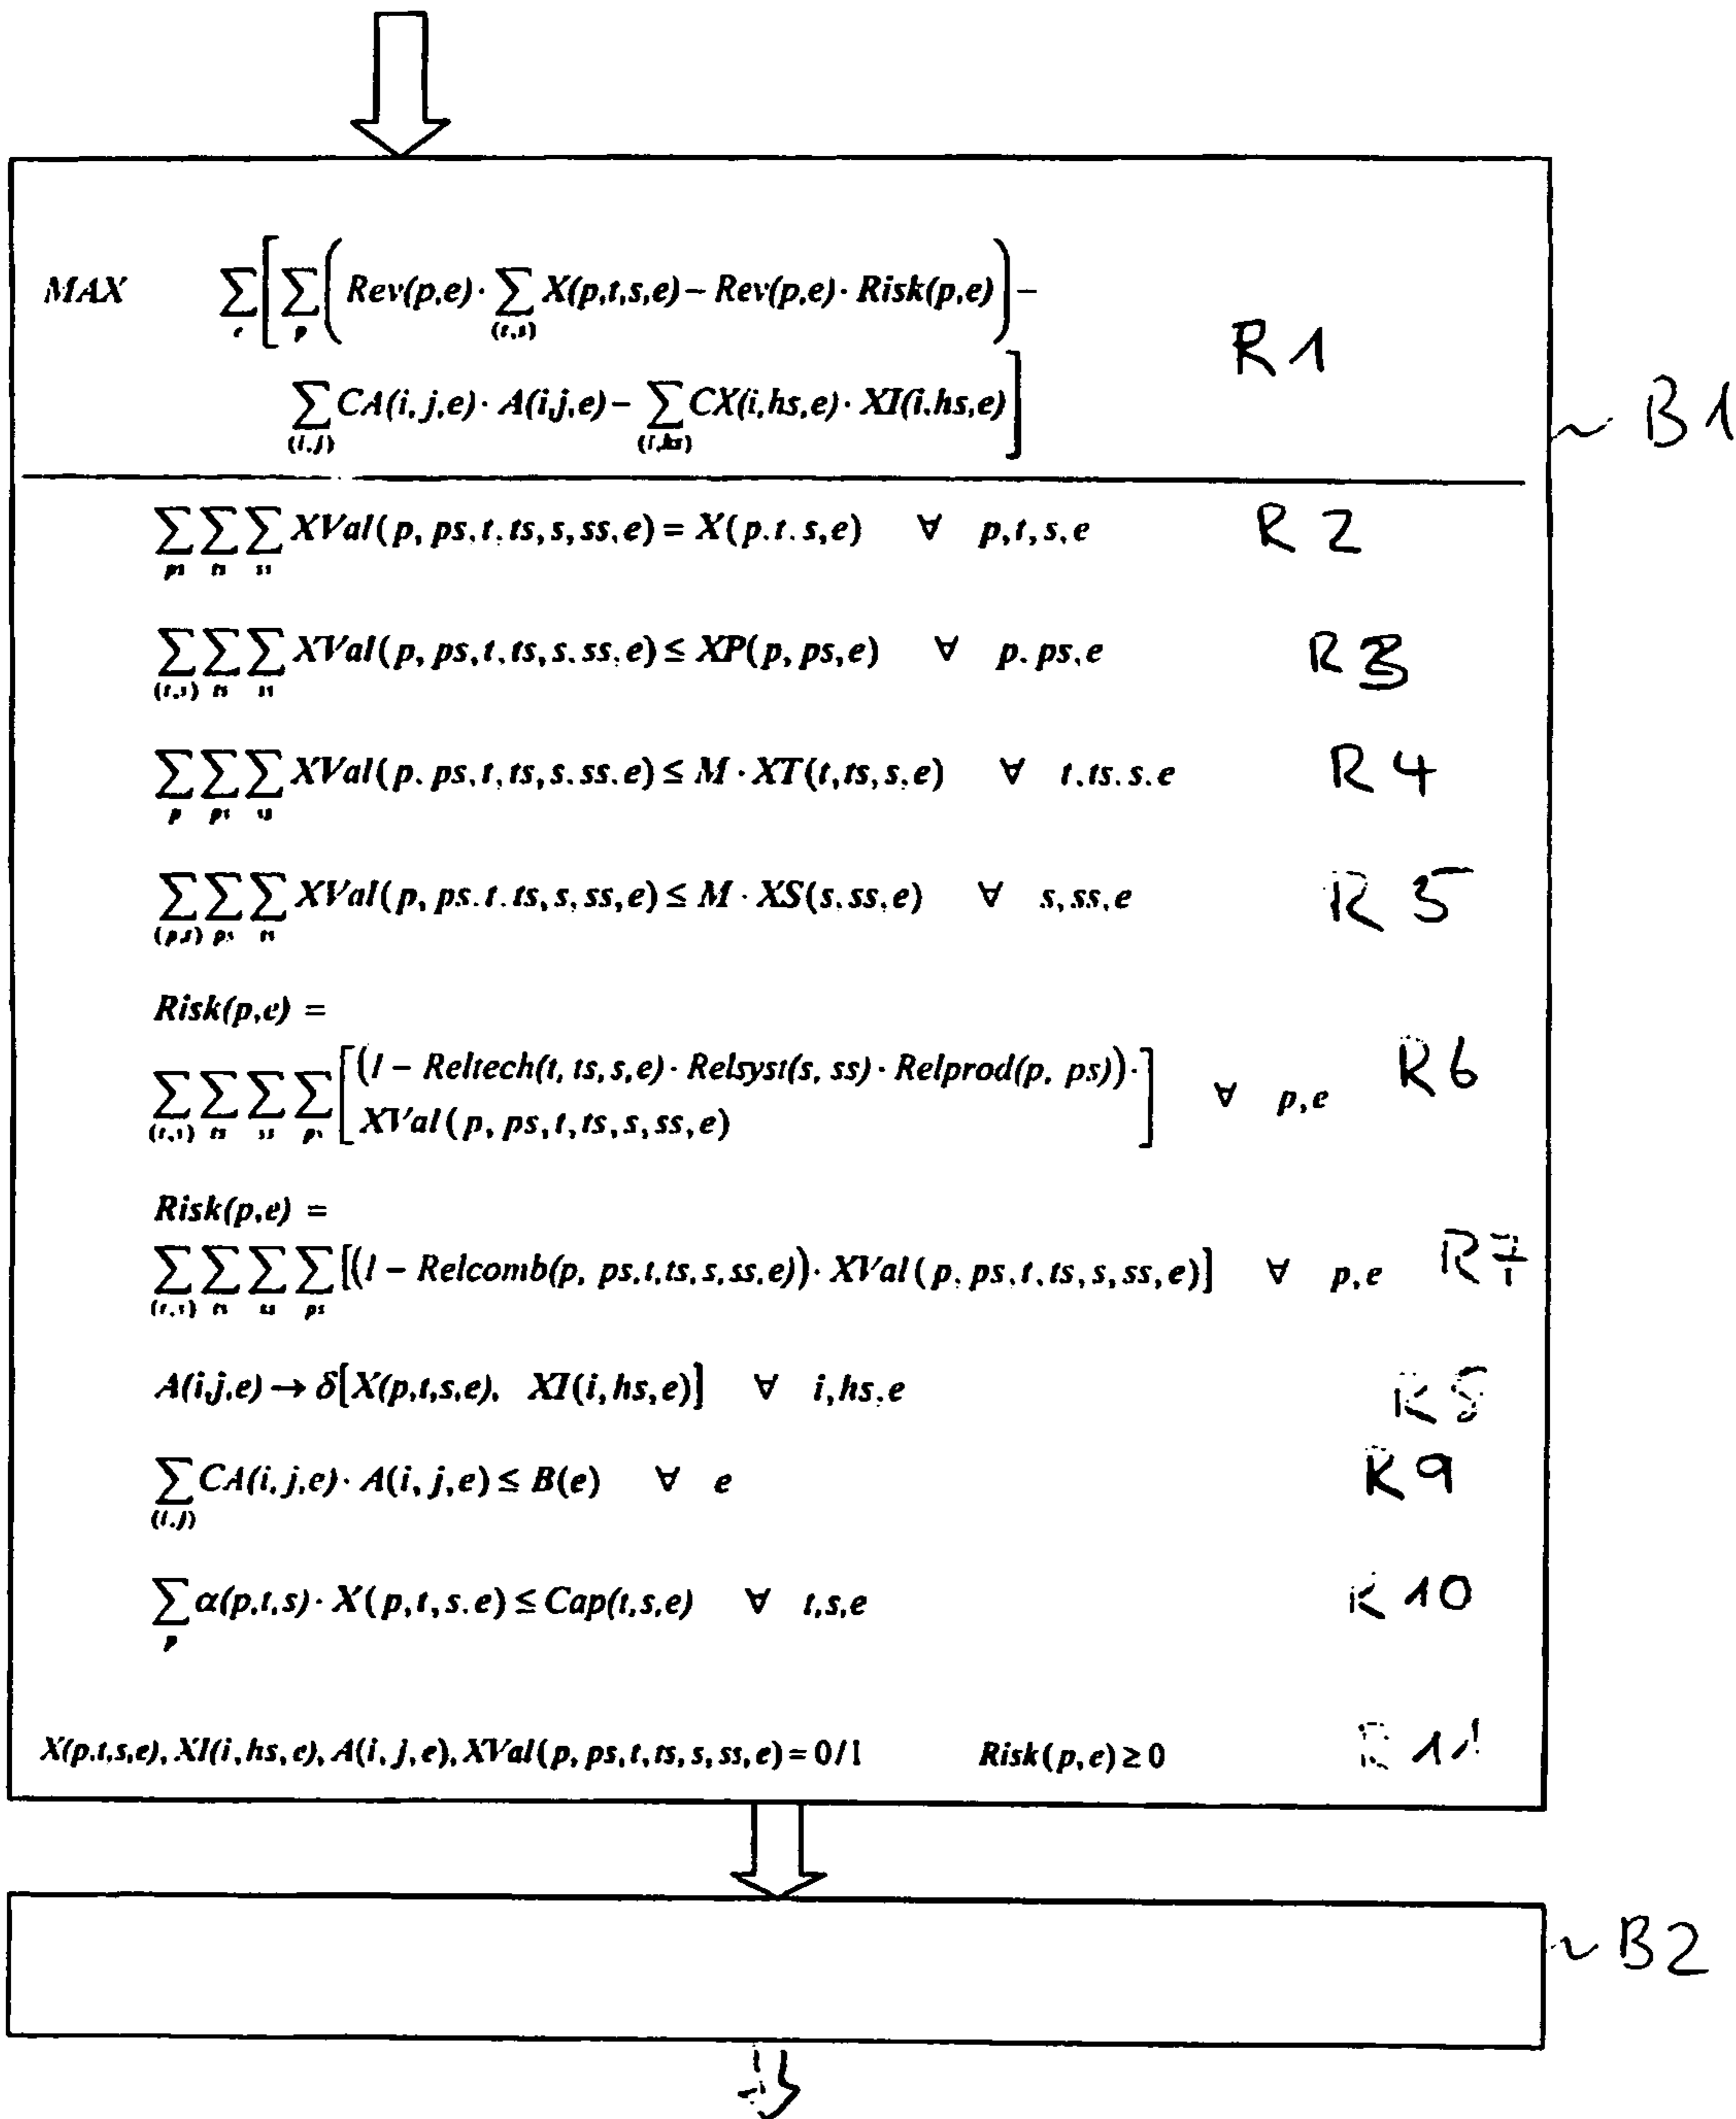 MAX ∑_e [ ∑_p ( Rev(p,e) · ∑_(t,s) X(p,t,s,e) − Rev(p,e) · Risk(p,e) ) − R1
∑_(i,j) CA(i,j,e) · A(i,j,e) − ∑_(i,hs) CX(i,hs,e) · XI(i,hs,e) ]
~ B1
∑_ps ∑_ts ∑_ss XVal(p, ps, t, ts, s, ss, e) = X(p.t.s,e) ∀ p,t,s,e R2
∑_(t,s) ∑_ts ∑_ss XVal(p, ps, t, ts, s, ss, e) ≤ XP(p, ps, e) ∀ p.ps,e R3
∑_p ∑_ps ∑_ss XVal(p. ps, t, ts, s. ss. e) ≤ M · XT(t,ts,s,e) ∀ t.ts.s.e R4
∑_(p,t) ∑_ps ∑_ts XVal(p, ps. t. ts, s, ss, e) ≤ M · XS(s, ss, e) ∀ s,ss,e R5
Risk(p,e) =
∑_(t,s) ∑_ts ∑_ss ∑_ps [ (1 − Reltech(t, ts, s, e) · Relsyst(s, ss) · Relprod(p, ps)) · ∀ p,e R6
XVal(p, ps, t, ts, s, ss, e) ]
Risk(p,e) =
∑_(t,s) ∑_ts ∑_ss ∑_ps [(1 − Relcomb(p, ps,t,ts,s,ss,e)) · XVal(p. ps, t, ts, s, ss, e)] ∀ p,e R7
A(i,j,e) → δ[X(p,t,s,e), XI(i,hs,e)] ∀ i,hs,e R8
∑_(i,j) CA(i,j,e) · A(i,j,e) ≤ B(e) ∀ e R9
∑_p α(p,t,s) · X(p,t,s.e) ≤ Cap(t,s,e) ∀ t,s,e R10
X(p.t,s,e), XI(i,hs,e), A(i,j,e), XVal(p, ps, t, ts, s, ss, e) = 0/1 Risk(p,e) ≥ 0 R11
~ B2